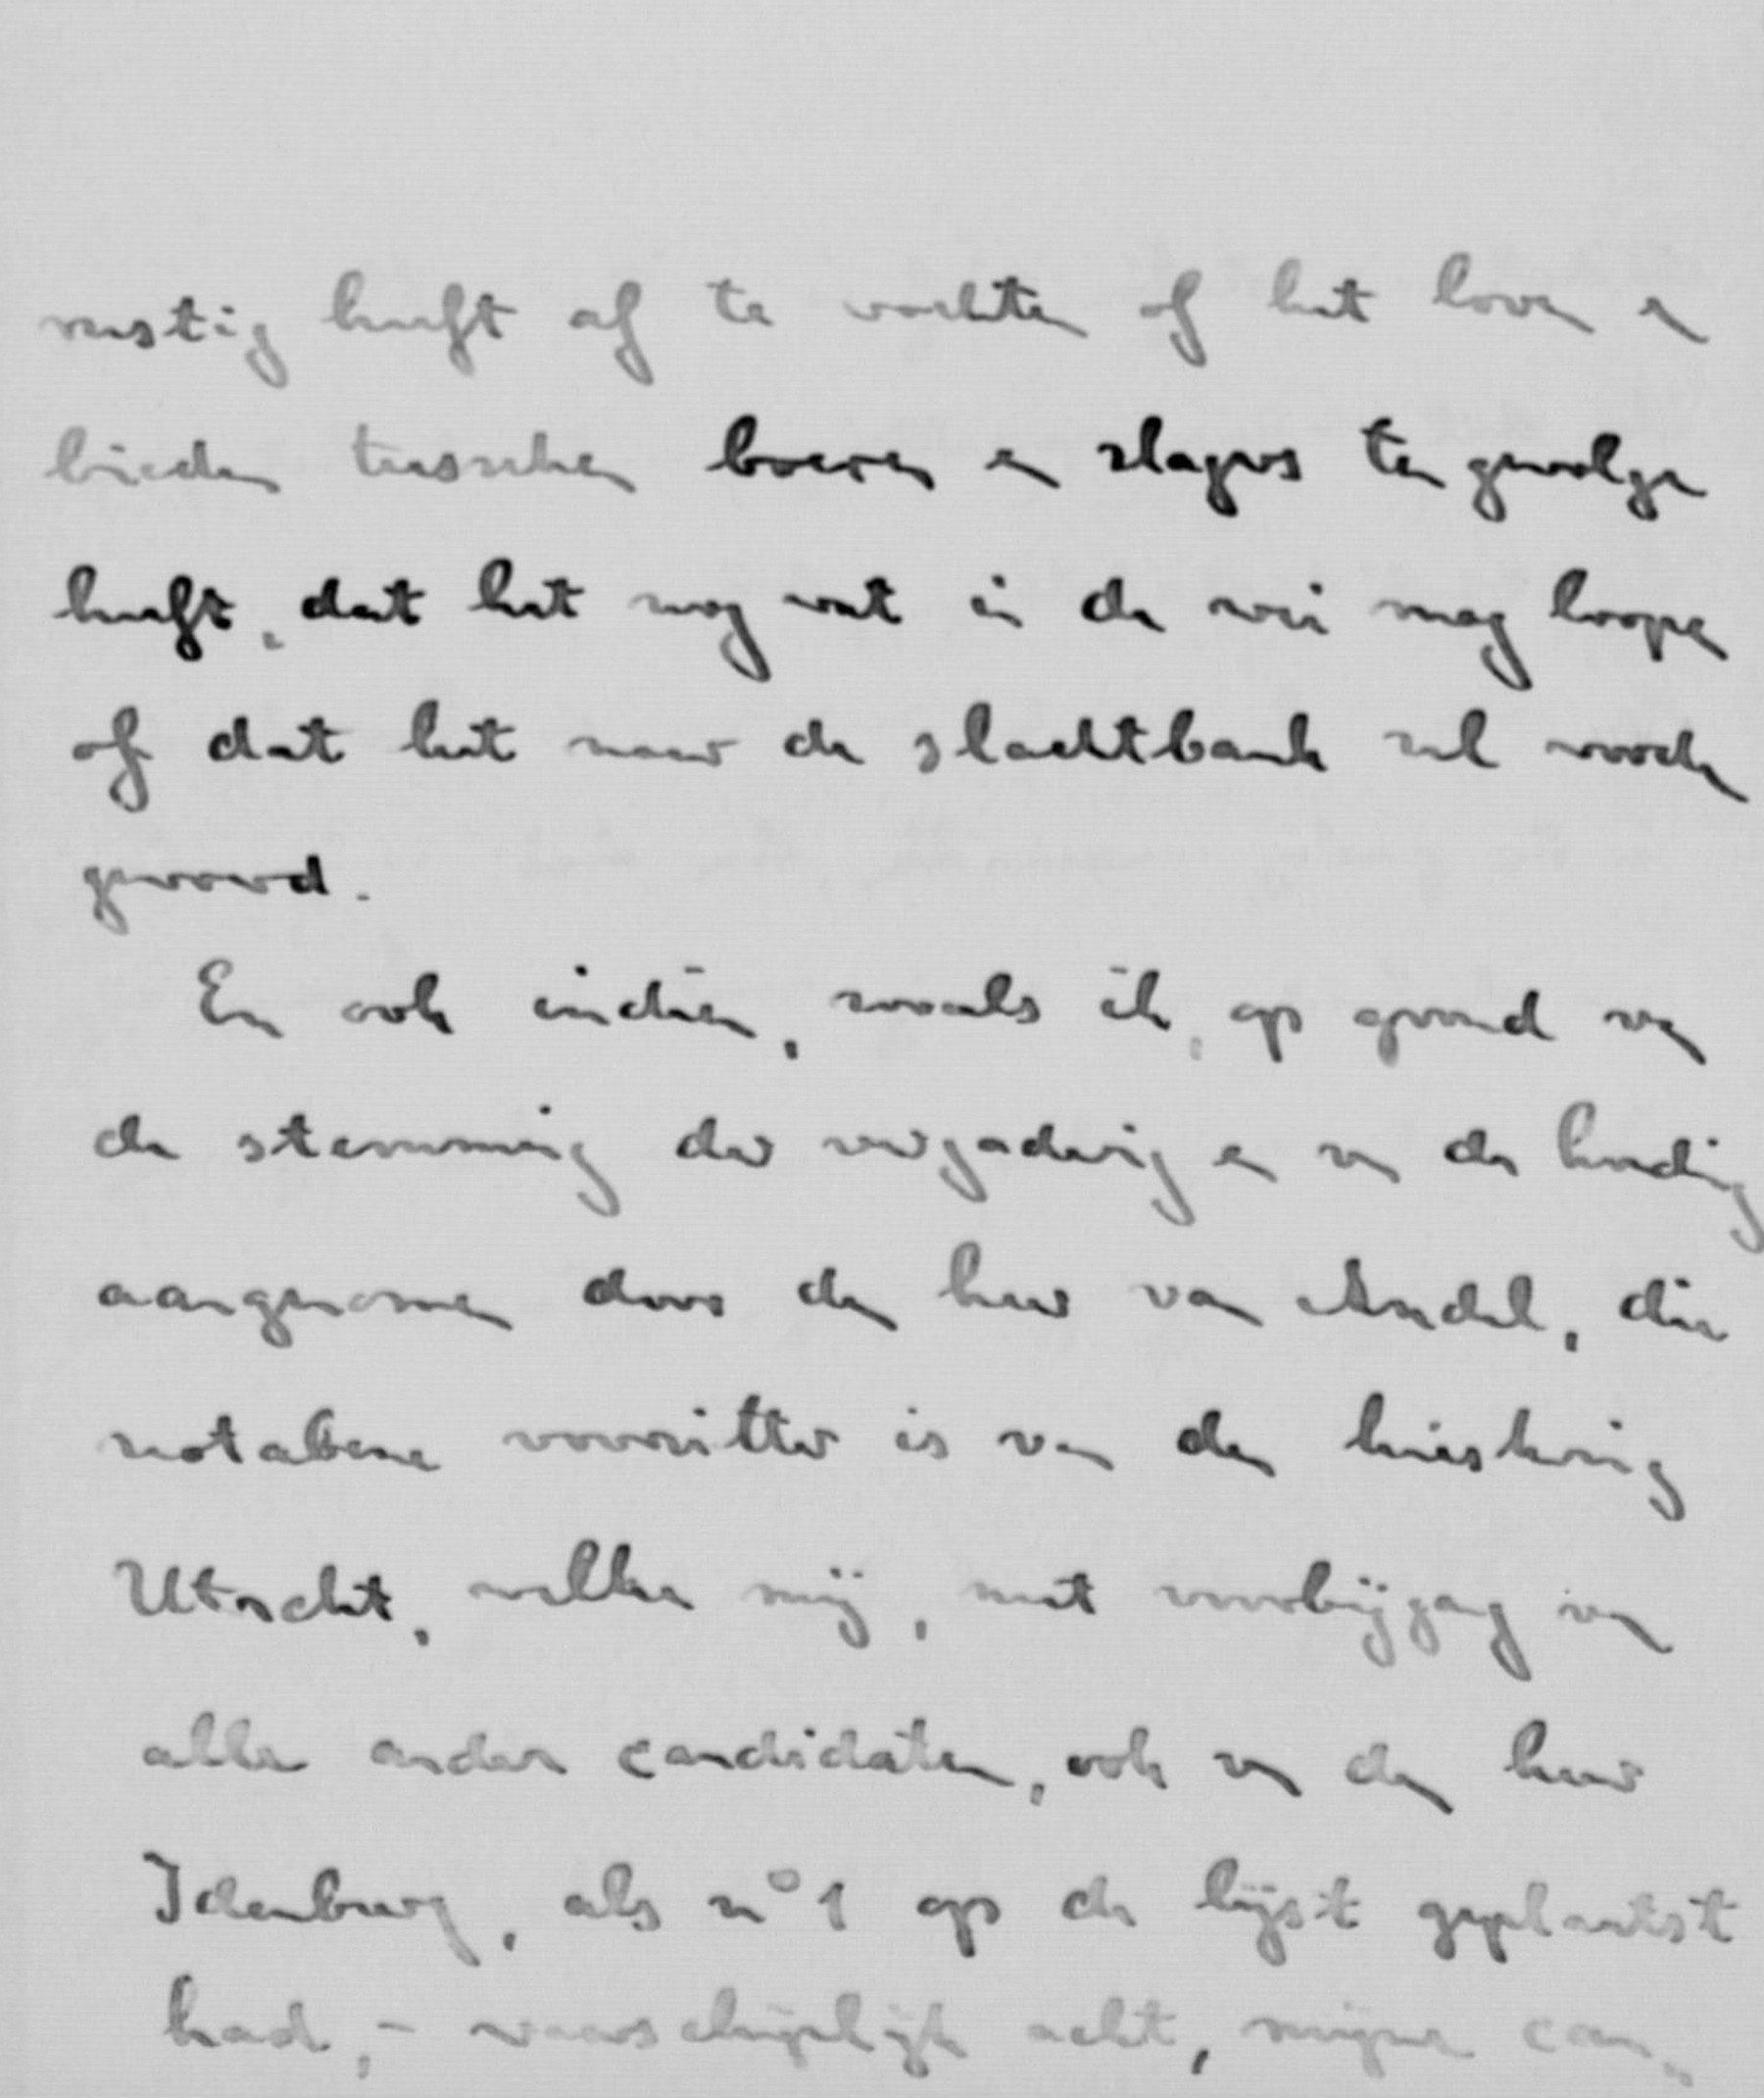 rustig heeft af te wachten of het loven en
bieden tusschen boeren en slagers ten gevolge
heeft, dat het nog wat in de wei mag loopen
of dat het naar de slachtbank zal worden
gevoerd.
En ook indien, zooals ik, op grond van
de stemming der vergadering en van de houding
aangenomen door den heer van Andel, die
notabene voorzitter is van den kieskring
Utrecht, welke mij, met voorbijgang van
alle andere candidaten, ook van den heer
Idenburg, als no 1 op de lijst geplaatst
had, - waarschijnlijk acht, mijne can„